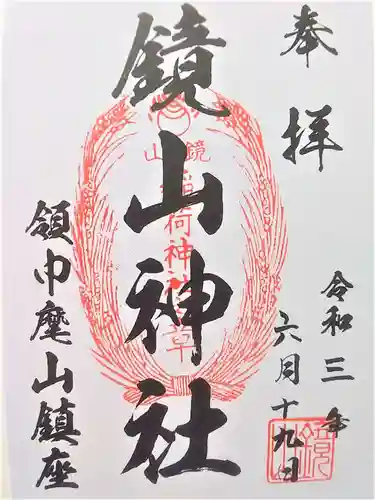 奉拝
鏡山神社
鏡山
稲荷神社
令和三年
六月十九日
領巾麾山鎮座